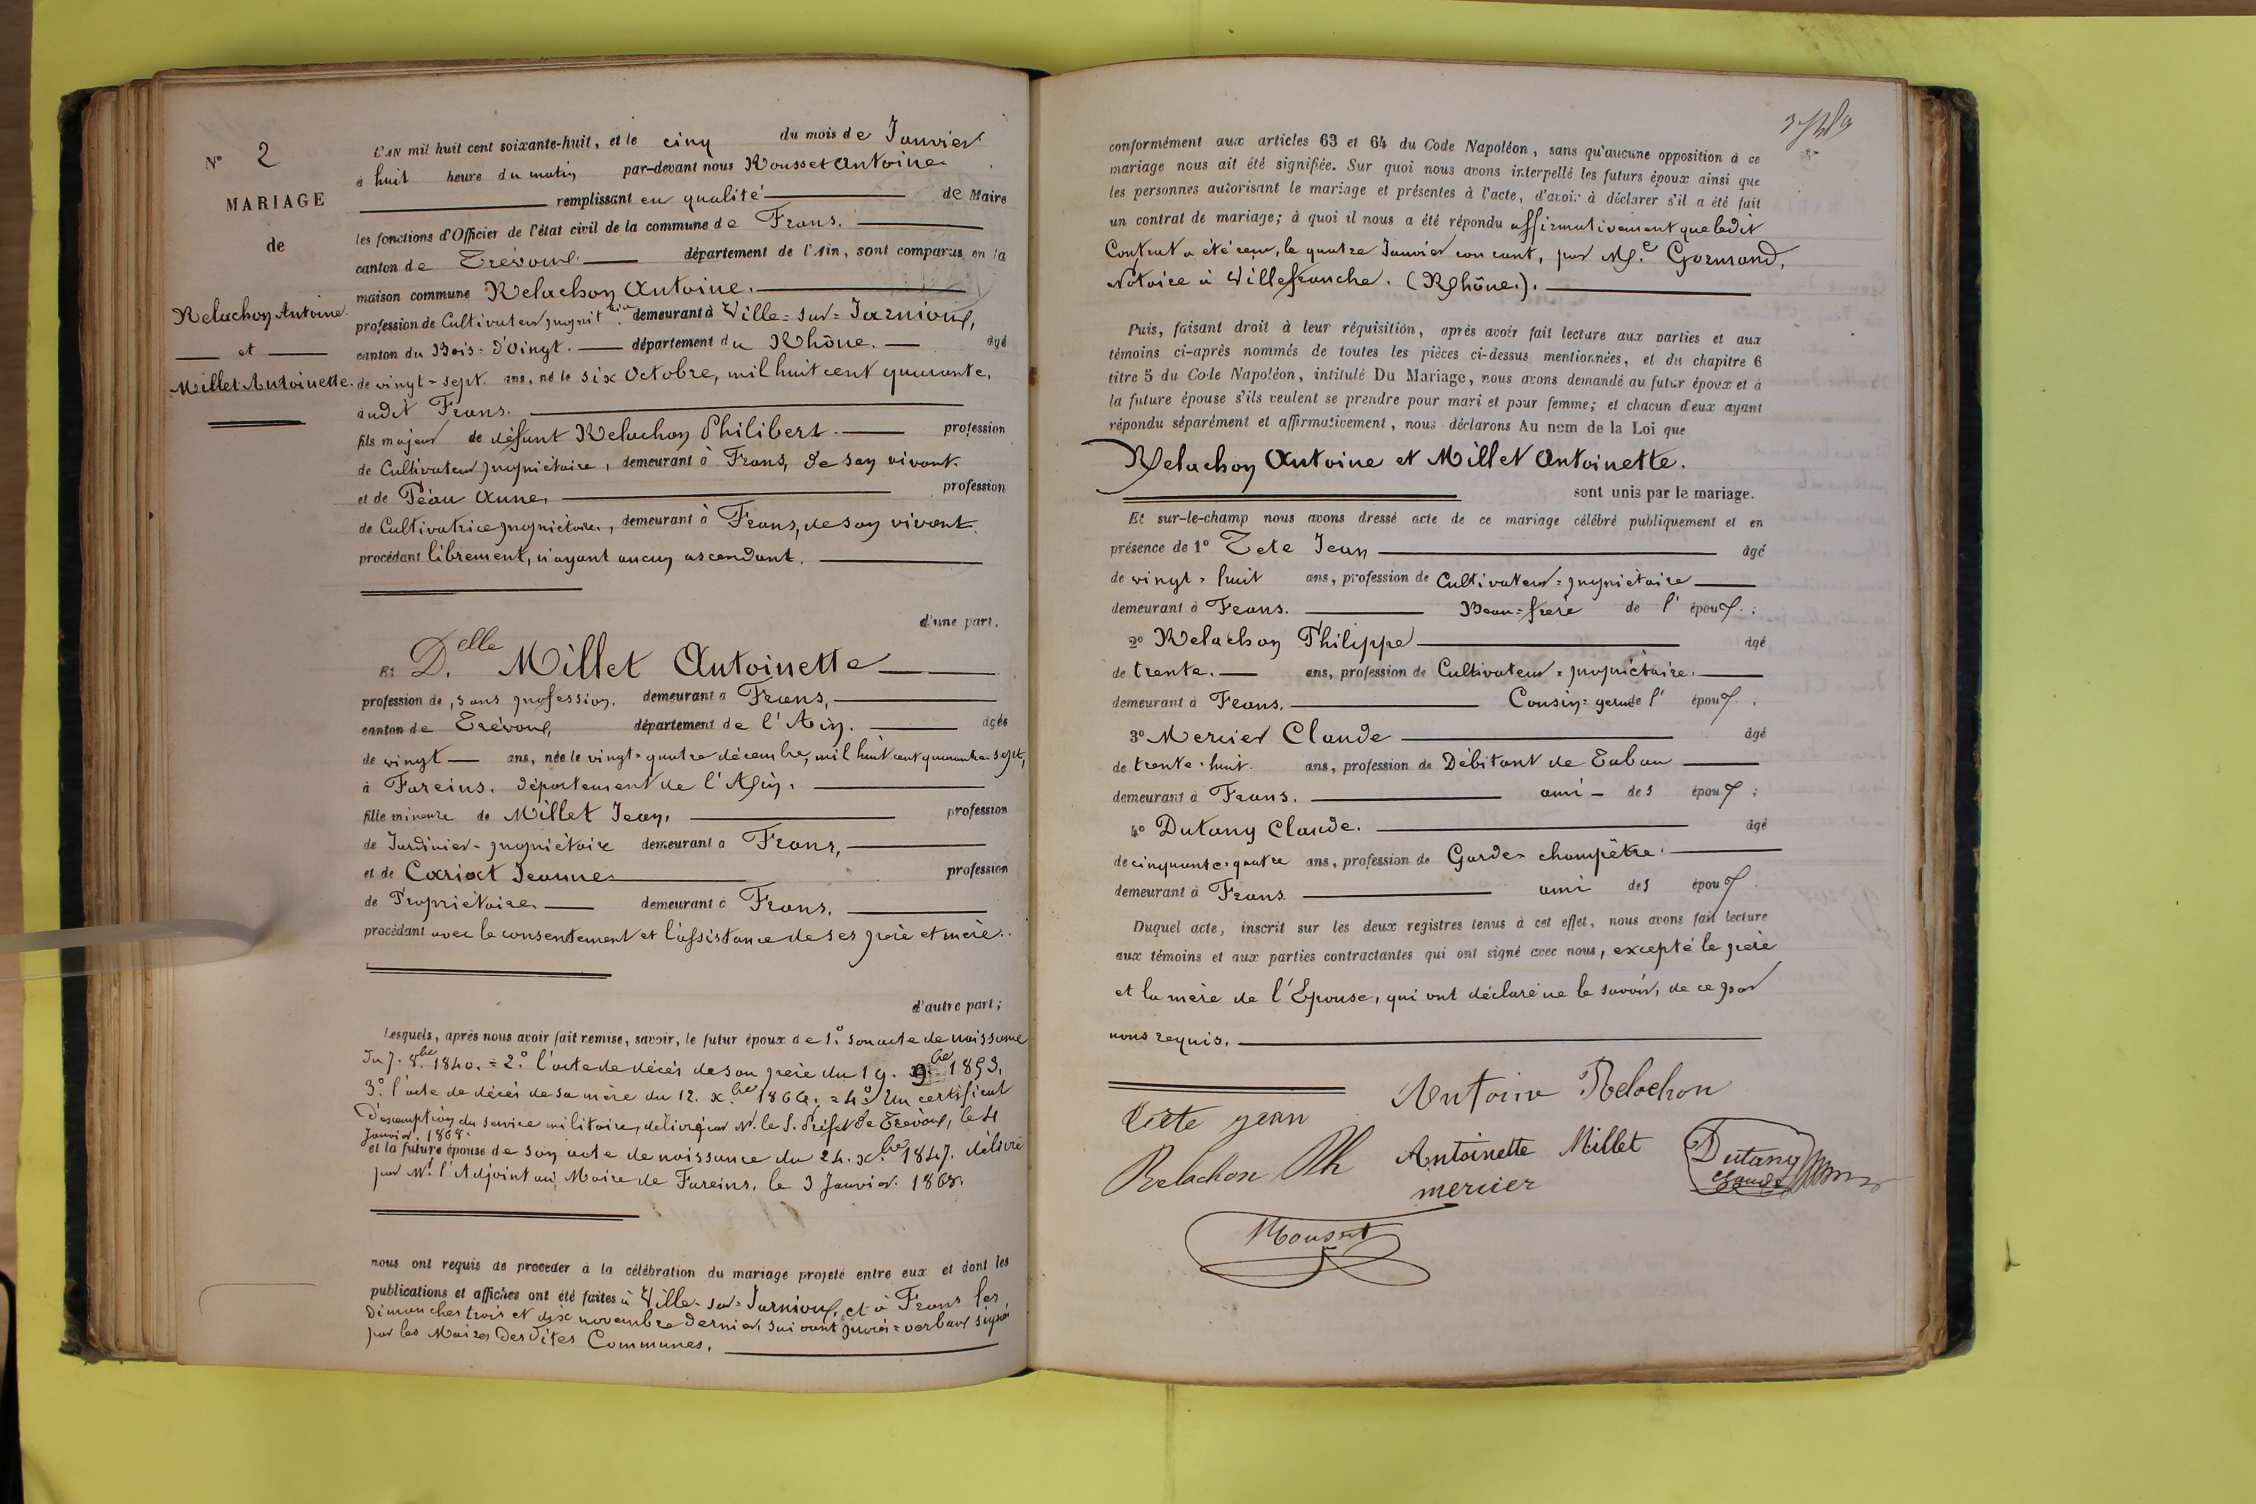 N° 2
MARIAGE
de
Relachon Antoine.
et
Millet Antoinette.
L'AN mil huit cent soixante-huit, et le cinq du mois de Janvier
à huit heure du matin par-devant nous Rousset Antoine
remplissant en qualité de Maire
les fonctions d'Officier de l'état civil de la commune de Frans.
canton de Trévoux département de l'Ain, sont comparus en la
maison commune Relachon Antoine.
profession de Cultivateur propriét.re demeurant à Ville-sur-Jarnioux,
canton du Bois-d'Oingt. département du Rhône. âgé
de vingt-sept ans, né le six Octobre, mil huit cent quarante,
audit Frans.
fils majeur de défunt Relachon Philibert. profession
de Cultivateur propriétaire, demeurant à Frans, de son vivant.
et de Péau Anne, profession
de Cultivatrice propriétaire, demeurant à Frans, de son vivant.
procédant librement, n'ayant aucun ascendant.
d'une part.
Et D.elle Millet Antoinette
profession de, sans profession, demeurant à Frans,
canton de Trévoux, département de l'Ain. âgée
de vingt ans, née le vingt-quatre décembre, mil huit cent quarante-sept,
à Fareins. département de l'Ain.
fille mineure de Millet Jean, profession
de Jardinier-propriétaire demeurant à Frans,
et de Cariat Jeanne profession
de Propriétaire demeurant à Frans,
procédant avec le consentement et l'assistance de ses père et mère.
d'autre part;
Lesquels, après nous avoir fait remise, savoir, le futur époux de 1.° son acte de naissance
du 7. 8.bre 1840. = 2.° l'acte de décès de son père du 19. 9.bre 1853.
3.° l'acte de décès de sa mère du 12. x.bre 1864. = 4.° Un certificat
d'exemption du service militaire, délivré par M. le S. Préfet de Trévoux, le 4
Janvier. 1868.
et la future épouse de son acte de naissance du 24. x.bre 1847. délivré
par M.r l'Adjoint au Maire de Fareins, le 3 Janvier 1868.
nous ont requis de procéder à la célébration du mariage projeté entre eux et dont les
publications et affiches ont été faites à Ville-sur-Jarnioux, et à Frans les
dimanches trois et dix novembre dernier, suivant procès-verbaux signés
par les Maires desdites Communes.
conformément aux articles 63 et 64 du Code Napoléon, sans qu'aucune opposition à ce
mariage nous ait été signifiée. Sur quoi nous avons interpellé les futurs époux ainsi que
les personnes autorisant le mariage et présentes à l'acte, d'avoir à déclarer s'il a été fait
un contrat de mariage; à quoi il nous a été répondu affirmativement que ledit
Contrat a été reçu, le quatre Janvier courant, par M.e Gormand,
Notaire à Villefranche. (Rhône.).
Puis, faisant droit à leur réquisition, après avoir fait lecture aux parties et aux
témoins ci-après nommés de toutes les pièces ci-dessus mentionnées, et du chapitre 6
titre 5 du Code Napoléon, intitulé Du Mariage, nous avons demandé au futur époux et à
la future épouse s'ils veulent se prendre pour mari et pour femme; et chacun d'eux ayant
répondu séparément et affirmativement, nous déclarons Au nom de la Loi que
Relachon Antoine et Millet Antoinette.
sont unis par le mariage.
Et sur-le-champ nous avons dressé acte de ce mariage célébré publiquement et en
présence de 1° Tete Jean âgé
de vingt-huit ans, profession de Cultivateur-propriétaire
demeurant à Frans. Beau-frère de l' époux. ;
2° Relachon Philippe âgé
de trente. ans, profession de Cultivateur-propriétaire.
demeurant à Frans. Cousin-germ de l' époux. ;
3° Mercier Claude âgé
de trente-huit. ans, profession de Débitant de Tabac
demeurant à Frans. ami des époux ;
4° Dutang Claude. âgé
de cinquante-quatre ans, profession de Garde-champêtre.
demeurant à Frans. ami des époux.
Duquel acte, inscrit sur les deux registres tenus à cet effet, nous avons fait lecture
aux témoins et aux parties contractantes qui ont signé avec nous, excepté le père
et la mère de l'Epouse, qui ont déclaré ne le savoir, de ce par
nous requis.
Antoine Relachon
tete jean
Antoinette Millet
Dutang
Claude
Relachon Ph
mercier
Rousset